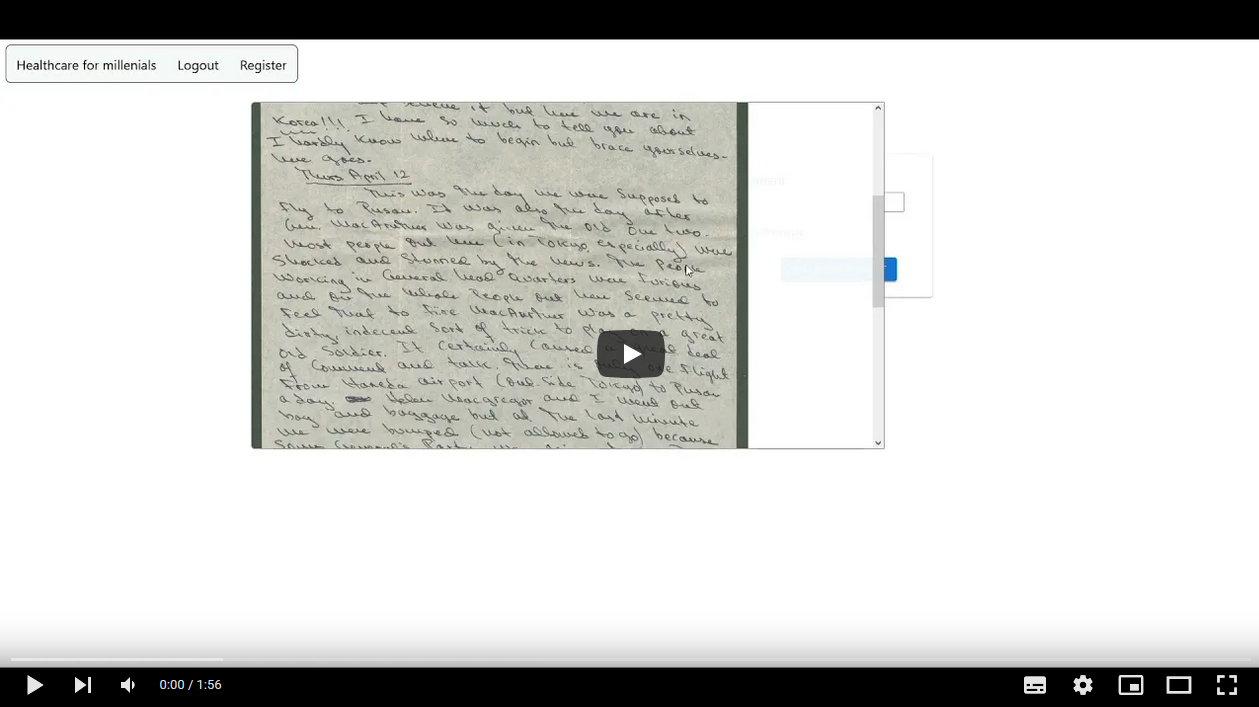 Healthcare for millenials Logout Register
it but here we are in
Korea!!! I have so much to tell you about
I hardly know where to begin but brace yourselves-
here goes.
Thurs April 12
This was the day we were supposed to
fly to Pusan. It was also the day after
Gen. MacArthur was given the old one two.
Most people out here (in Tokyo, especially) were
shocked and stunned by the news. The people
working in General Head Quarters were furious
and on the whole people out here seemed to
feel that to fire MacArthur was a pretty
dirty, indecent sort of trick to play on a great
old soldier. It certainly caused a deal
of comment and talk. There is only one flight
from Haneda airport (out side Tokyo) to Pusan
a day. Helen Macgregor and I went out
bag and baggage but at the last minute
we were bumped (not allowed to go) because
some General's Party
0:00 / 1:56